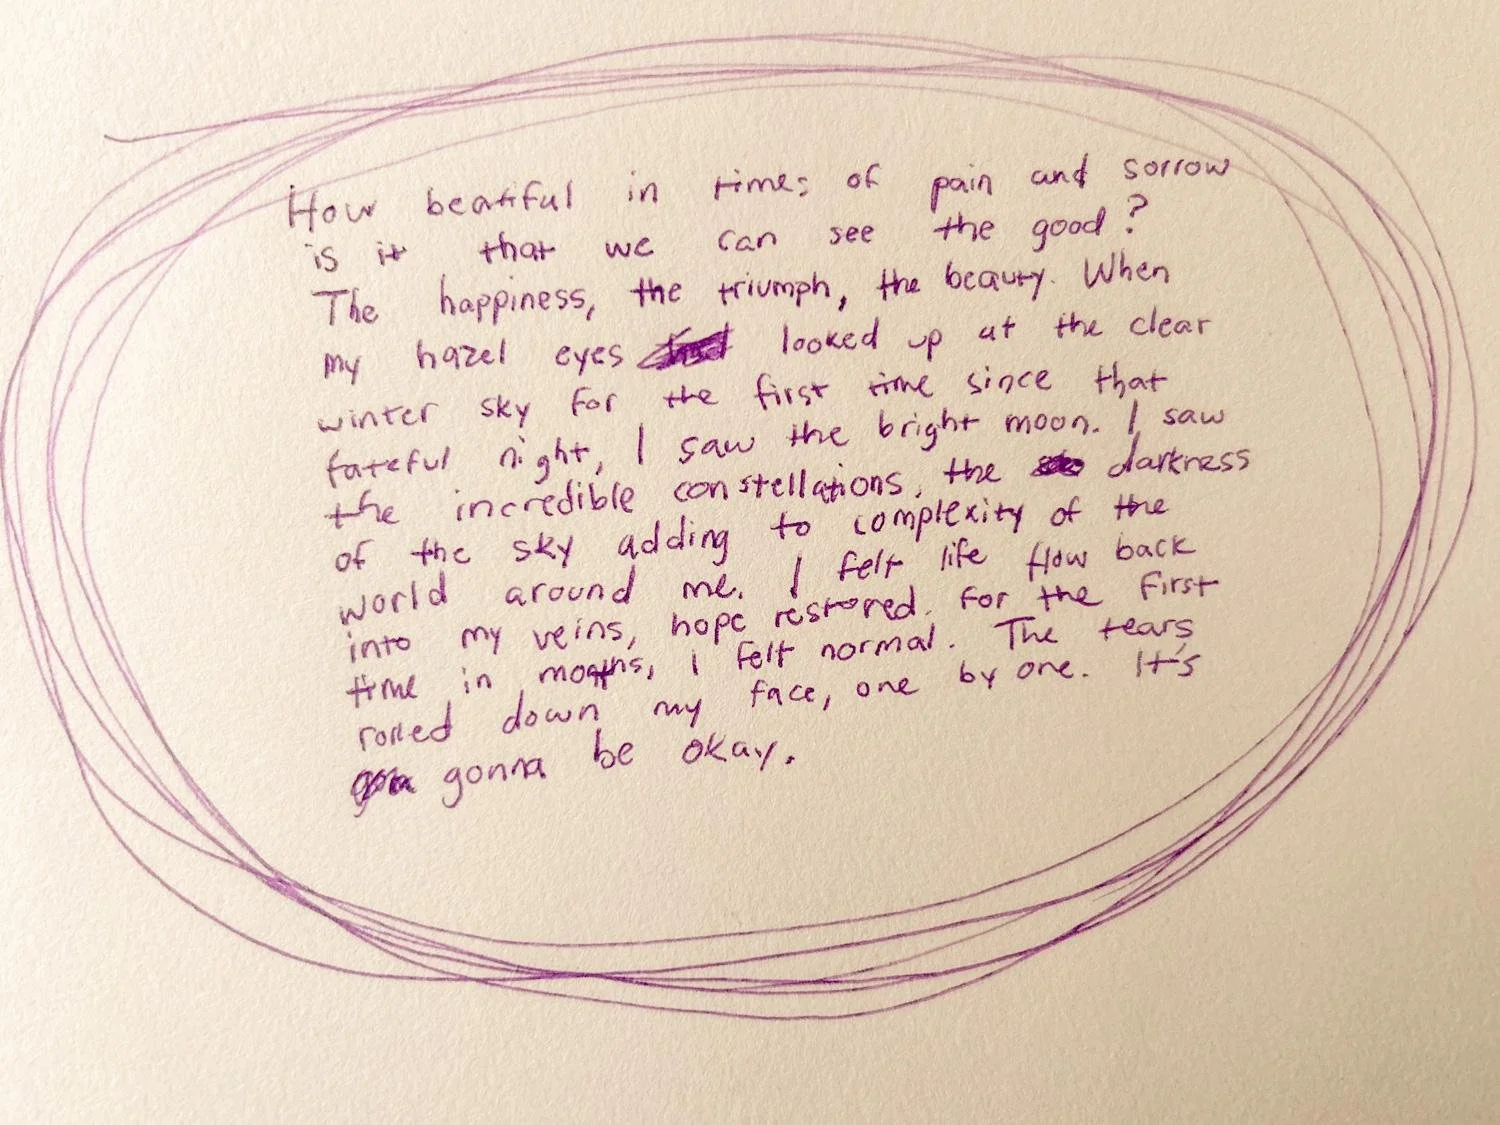 How beatiful in times of pain and sorrow
is it that we can see the good?
The happiness, the triumph, the beauty. When
my hazel eyes looked up at the clear
winter sky for the first time since that
fateful night, I saw the bright moon. I saw
the incredible constellations, the darkness
of the sky adding to complexity of the
world around me. I felt life flow back
into my veins, hope restored. For the first
time in months, I felt normal. The tears
rolled down my face, one by one. It's
gonna be okay.